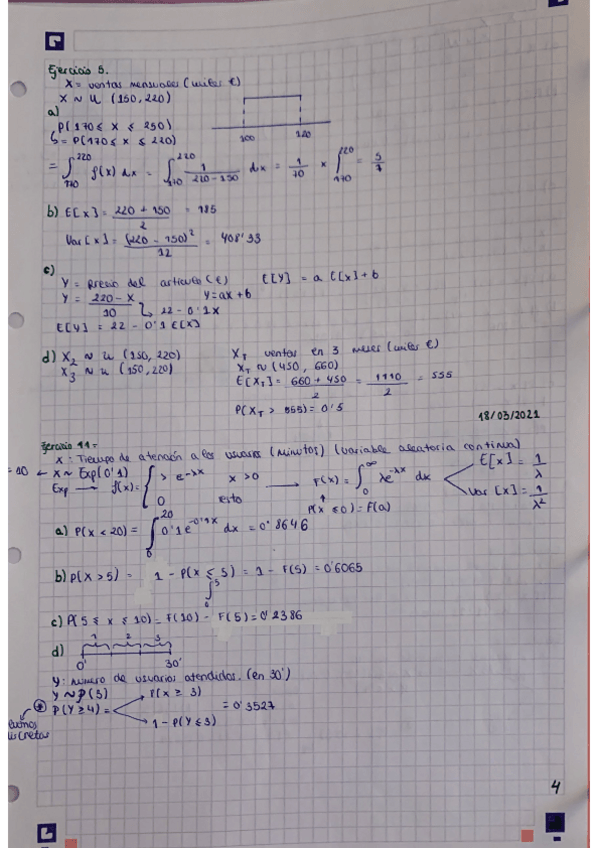 Ejercicio 5.
X = ventas mensuales (miles €)
X ~ U (150, 220)
a)
P(170 ≤ X ≤ 250)
= P(170 ≤ X ≤ 220)
= ∫₁₇₀²²⁰ f(x) dx = ∫₁₇₀²²⁰ 1/(220-150) dx = 1/70 x ∫₁₇₀²²⁰ = 5/7
b) E[X] = (220 + 150)/2 = 185
Var[X] = (220 - 150)²/12 = 408'33
c)
Y = Precio del artículo (€) E[Y] = a E[X] + b
Y = (220 - X)/10 Y = ax + b
22 - 0'1X
E[Y] = 22 - 0'1 E[X]
d) X₂ ~ U (150, 220) X_T ventas en 3 meses (miles €)
X₃ ~ U (150, 220) X_T ~ (450, 660)
E[X_T] = (660 + 450)/2 = 1110/2 = 555
P(X_T > 555) = 0'5
18/03/2021
Ejercicio 11=
X: Tiempo de atención a los usuarios (minutos) (variable aleatoria continua)
= 10 ← X ~ Exp(0'1) E[X] = 1/λ
Exp → f(x) = { λ e^-λx x > 0 → F(x) = ∫₀^∞ λe^-λx dx
0 resto P(X ≤ a) = F(a) Var[X] = 1/λ²
a) P(X < 20) = ∫₀²⁰ 0'1 e^-0'1x dx = 0'8646
b) P(X > 5) = 1 - P(X ≤ 5) = 1 - F(5) = 0'6065
c) P(5 ≤ X ≤ 10) = F(10) - F(5) = 0'2386
d) 1 2 3
0' 30'
Y: número de usuarios atendidos. (en 30')
Y ~ P(3)
P(Y ≥ 4) = P(X ≥ 3) = 0'3527
1 - P(Y ≤ 3)
4